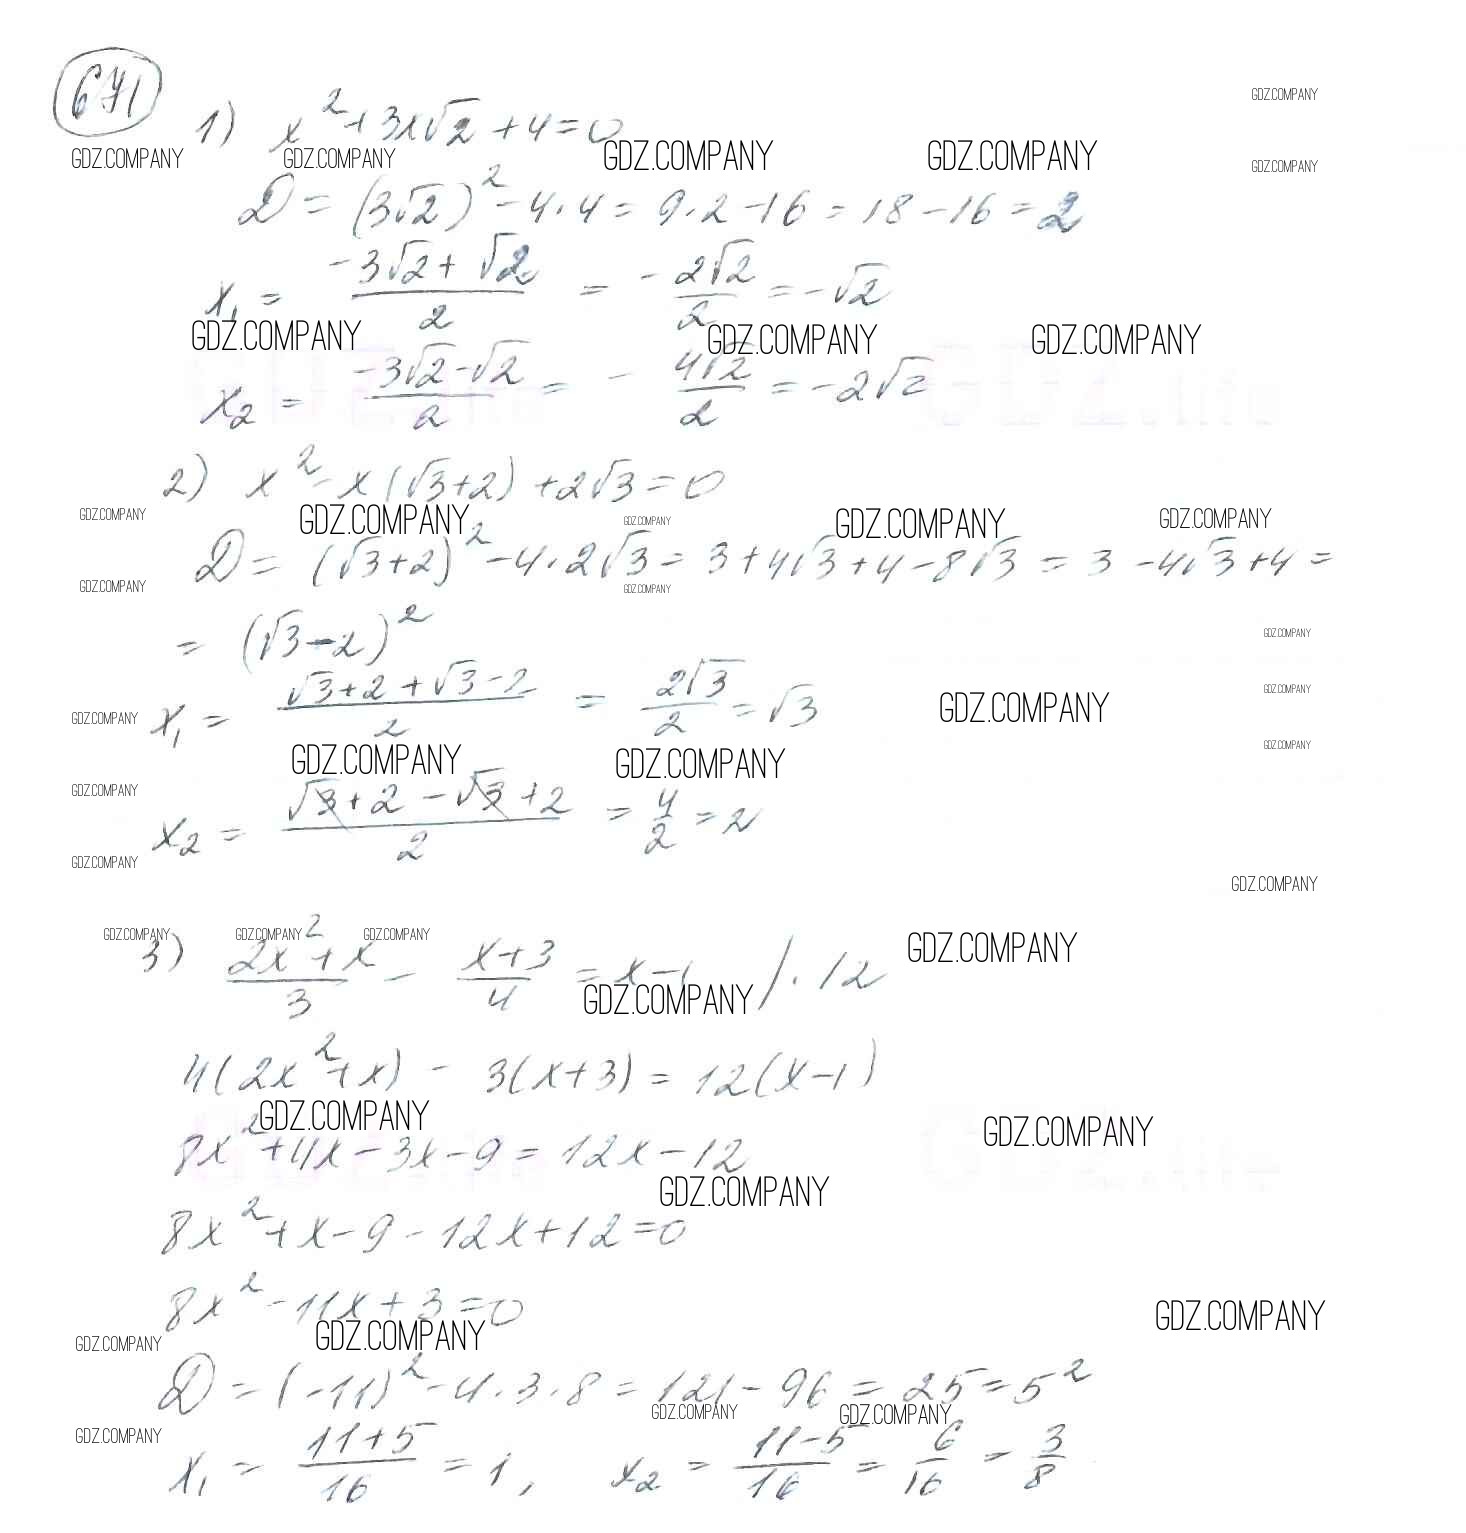 671
1) x² + 3x√2 + 4 = 0
GDZ.COMPANY GDZ.COMPANY GDZ.COMPANY GDZ.COMPANY GDZ.COMPANY
GDZ.COMPANY
D = (3√2)² - 4·4 = 9·2 - 16 = 18 - 16 = 2
x₁ = (-3√2 + √2)/2 = - 2√2/2 = -√2
GDZ.COMPANY GDZ.COMPANY GDZ.COMPANY
x₂ = (-3√2 - √2)/2 = - 4√2/2 = -2√2
2) x² - x(√3+2) + 2√3 = 0
GDZ.COMPANY GDZ.COMPANY GDZ.COMPANY GDZ.COMPANY GDZ.COMPANY
D = (√3+2)² - 4·2√3 = 3 + 4√3 + 4 - 8√3 = 3 - 4√3 + 4 =
GDZ.COMPANY GDZ.COMPANY
= (√3-2)²
GDZ.COMPANY
GDZ.COMPANY
x₁ = (√3+2+√3-2)/2 = 2√3/2 = √3
GDZ.COMPANY GDZ.COMPANY
GDZ.COMPANY GDZ.COMPANY GDZ.COMPANY
GDZ.COMPANY
x₂ = (√3+2-√3+2)/2 = 4/2 = 2
GDZ.COMPANY
GDZ.COMPANY
GDZ.COMPANY GDZ.COMPANY GDZ.COMPANY GDZ.COMPANY
3) (2x²+x)/3 - (x+3)/4 = x-1 /·12
GDZ.COMPANY
4(2x²+x) - 3(x+3) = 12(x-1)
GDZ.COMPANY GDZ.COMPANY
8x²+4x-3x-9 = 12x-12
GDZ.COMPANY
8x²+x-9-12x+12=0
8x²-11x+3=0
GDZ.COMPANY GDZ.COMPANY GDZ.COMPANY
D = (-11)² - 4·3·8 = 121 - 96 = 25 = 5²
GDZ.COMPANY GDZ.COMPANY GDZ.COMPANY
x₁ = (11+5)/16 = 1, x₂ = (11-5)/16 = 6/16 = 3/8